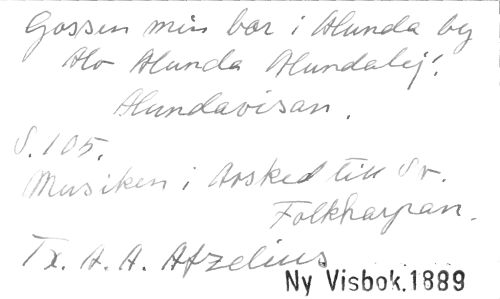 Gossen min bor i Alunda by
Alunda Alundalej!
Alundavisan.
S. 105.
Musiken i Avsked till Sv.
Folkharpan.
Tx. A. A. Afzelius
Ny Visbok.1889